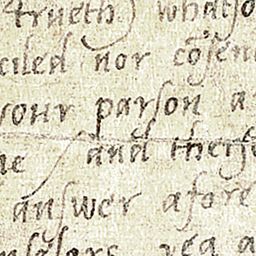 trueth) whatso
ciled nor cōsen
your parson a
and therfo
answer afore
yea a